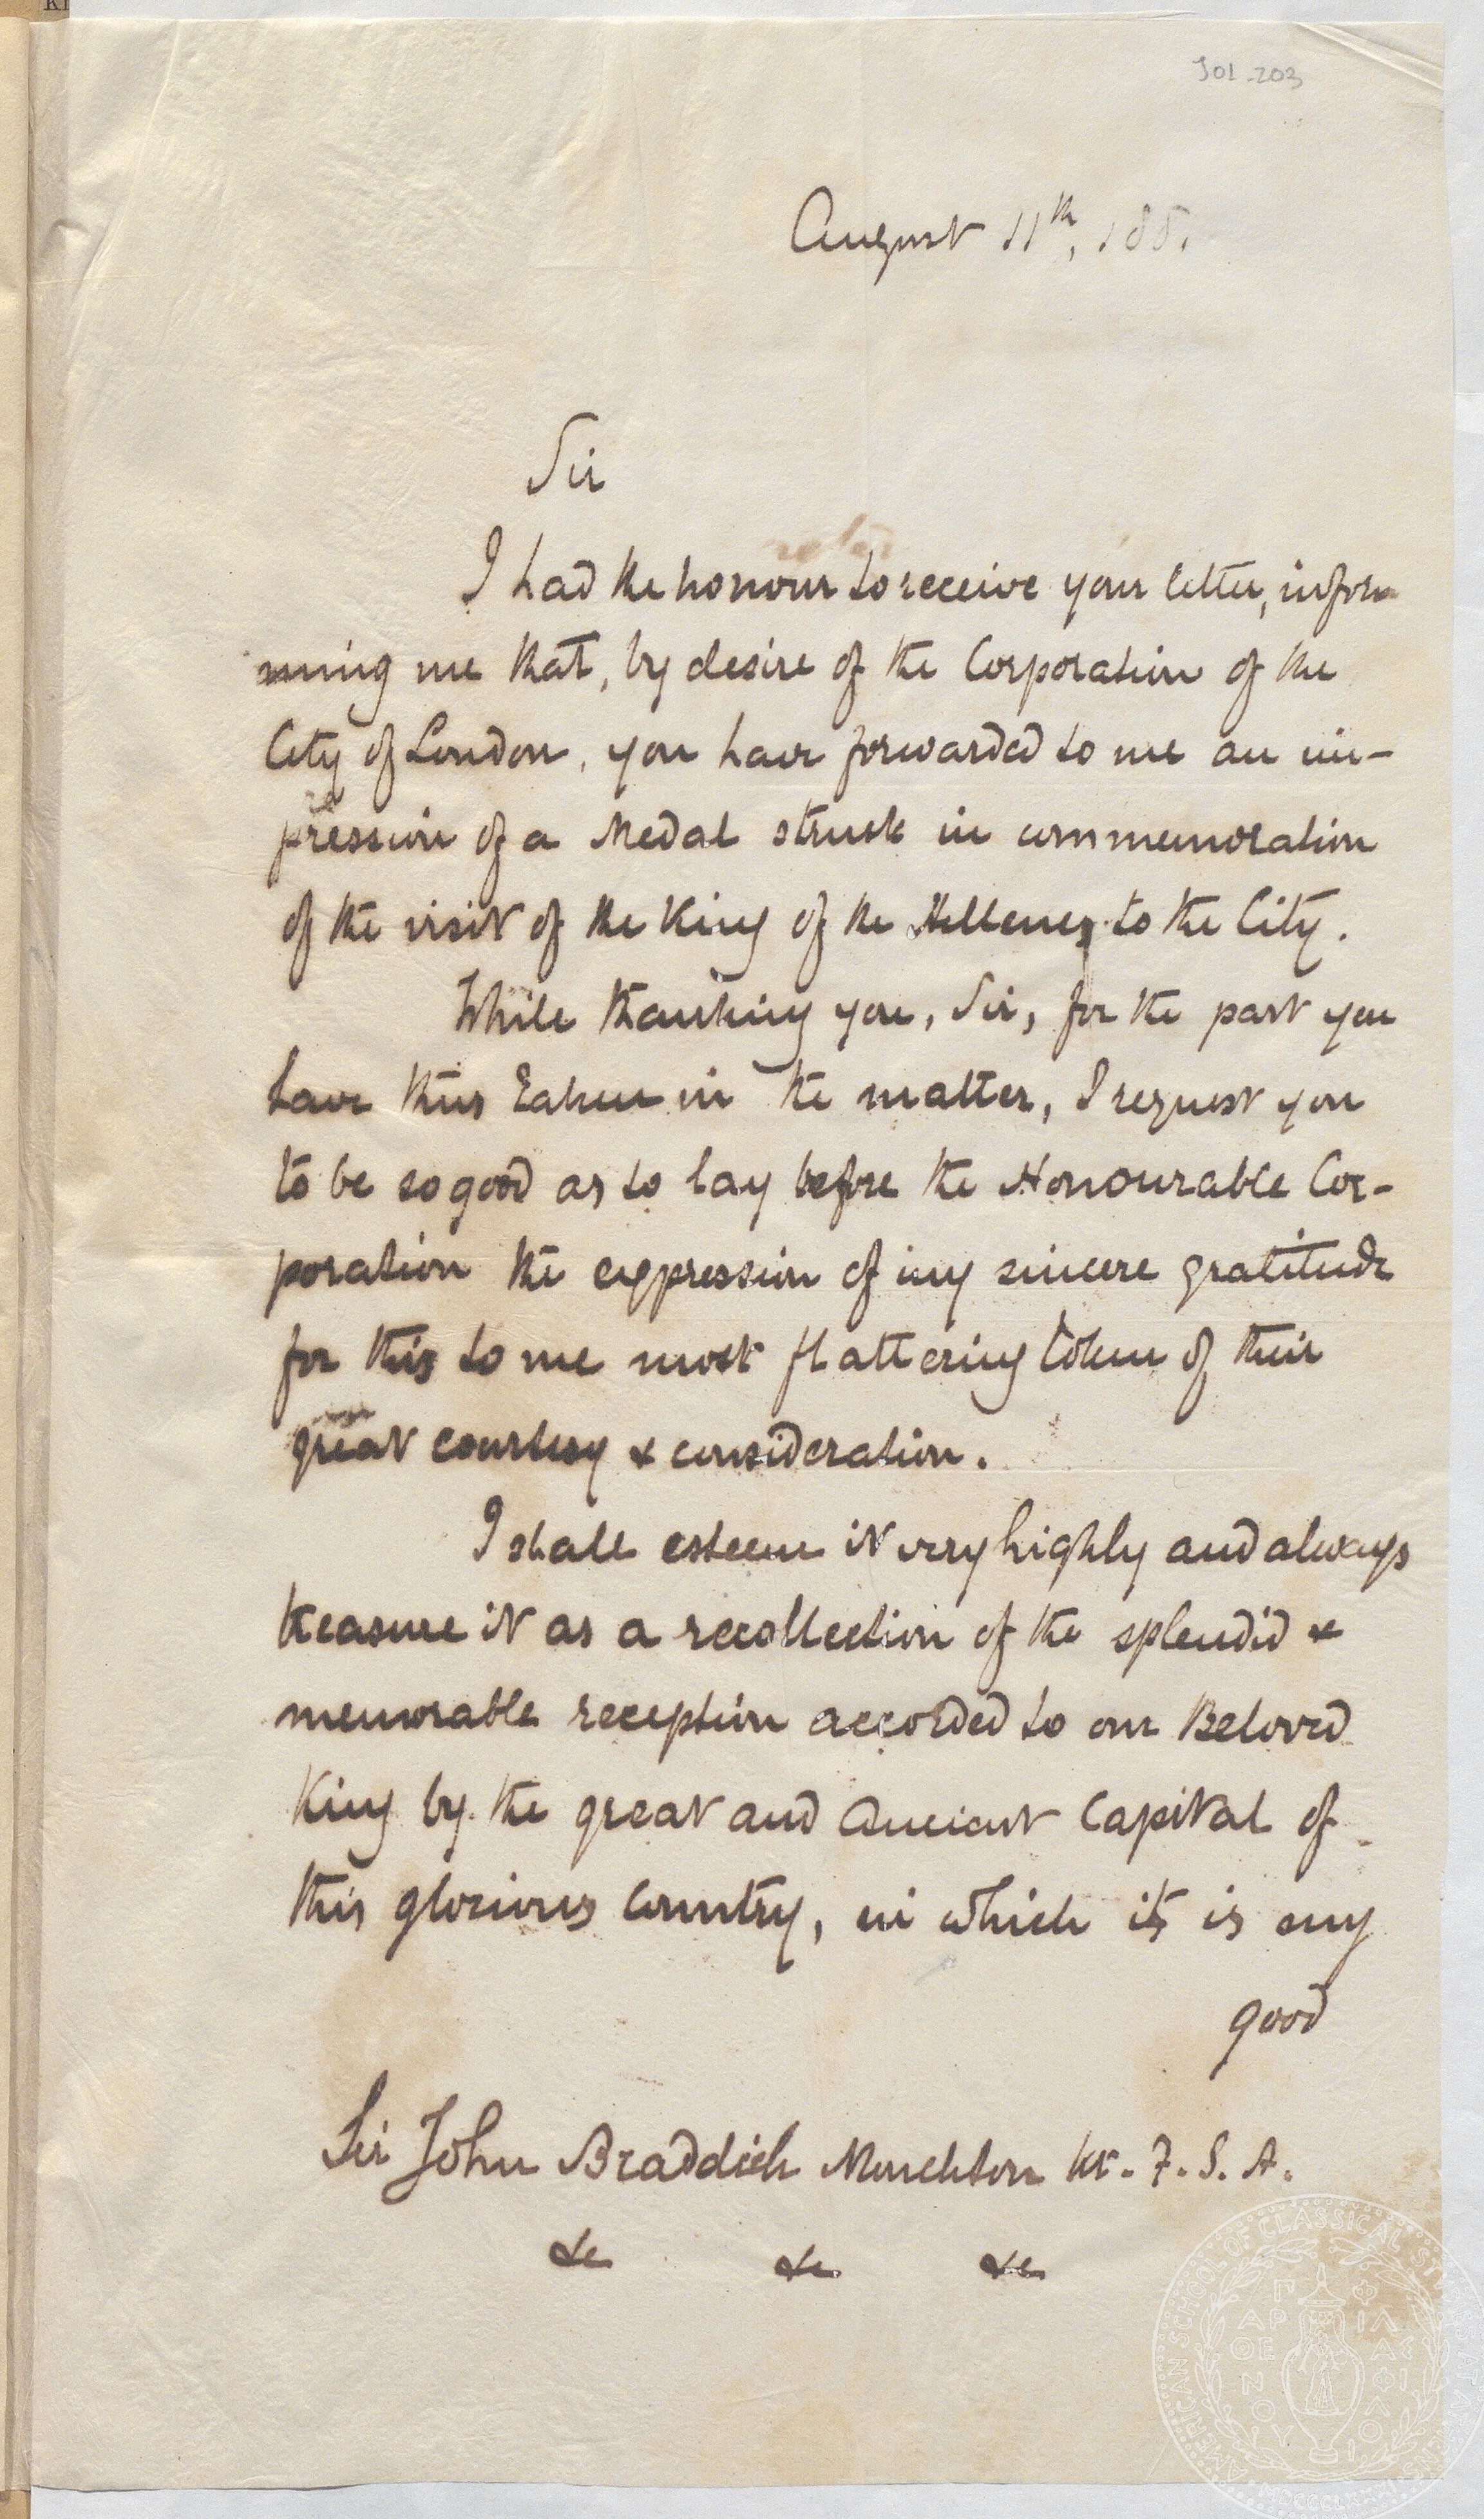 201-203
August 11th, 188
Sir
I had the honour to receive your letter, infor
ming me that, by desire of the Corporation of the
City of London, you have forwarded to me an im-
pression of a Medal struck in commemoration
of the visit of the King of the Hellenes to the City.
While thanking you, Sir, for the part you
have thus taken in the matter, I request you
to be so good as to lay before the Honourable Cor-
poration the expression of my sincere gratitude
for this to me most flattering token of their
great courtesy & consideration.
I shall esteem it very highly and always
treasure it as a recollection of the splendid &
memorable reception accorded to our Beloved
King by the great and Ancient Capital of
this glorious Country, in which it is my
good
Sir John Braddick Monckton Kt. F. S. A.
&c &c &c
AMERICAN SCHOOL OF CLASSICAL STUDIES AT ATHENS
ΠΑΡΘΕΝΟΥ ΦΙΛΑΣ ΦΙΛΟΙ